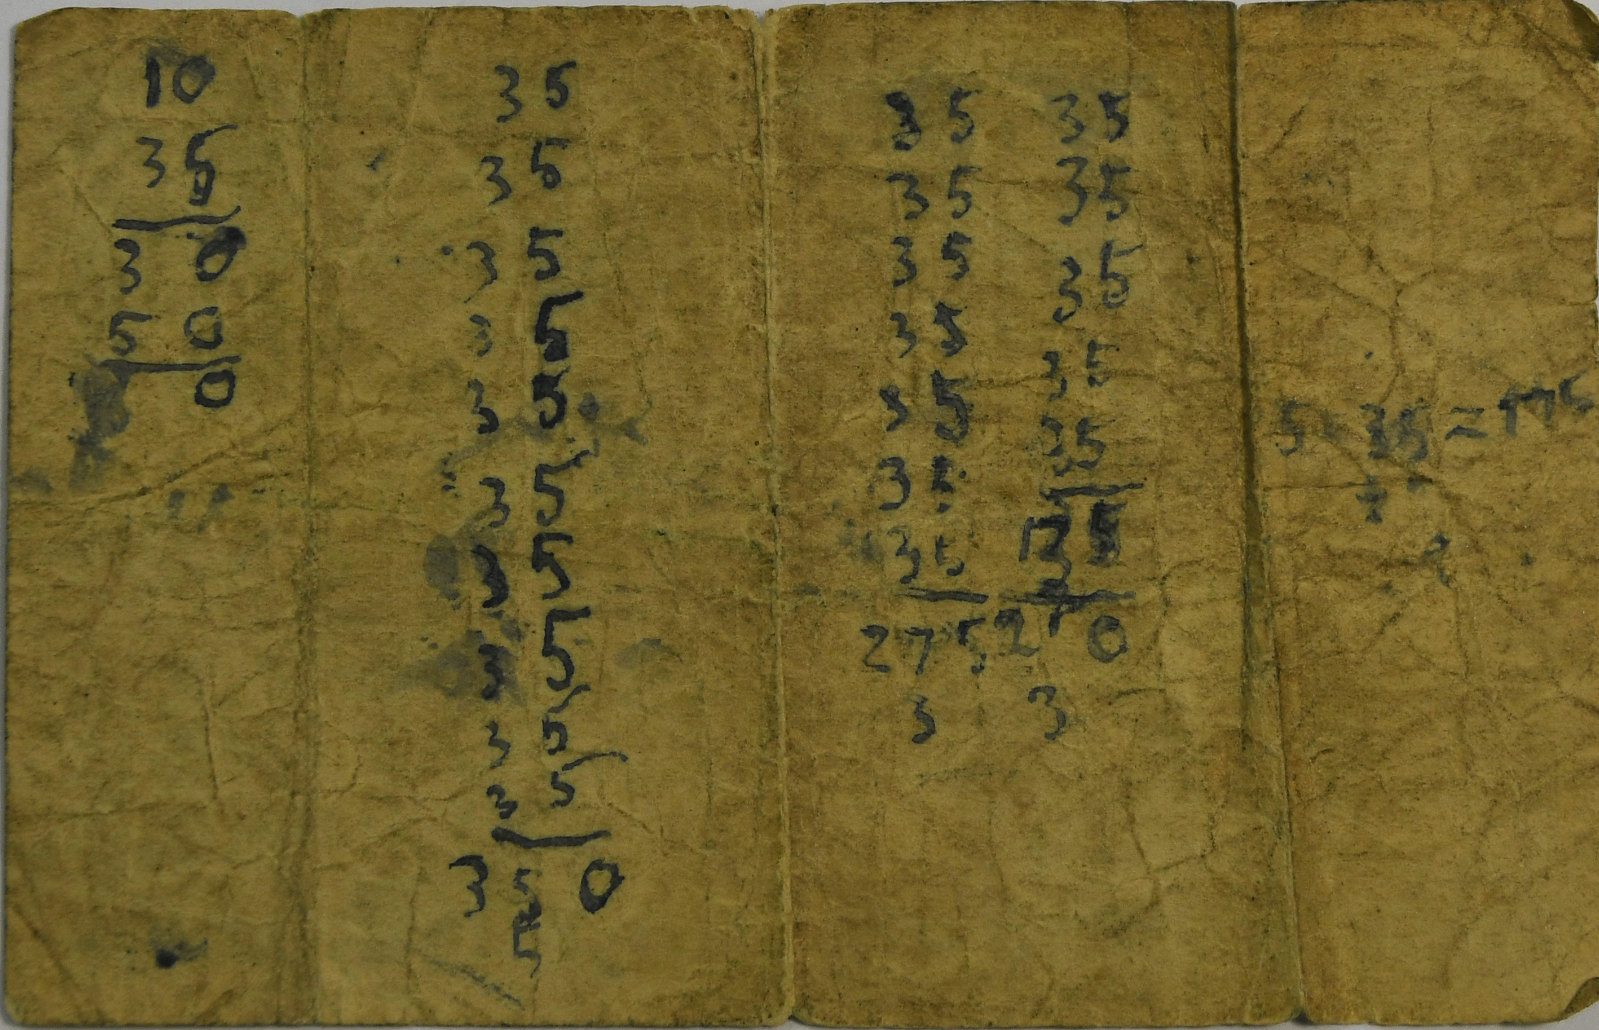 10
35
3 0
5 0
0
35
35
35
35
35
35
35
35
35
35
3 5 0
5
35
35
35
35
35
35
35
275
3
35
35
35
35
35
3
5 35 = 175